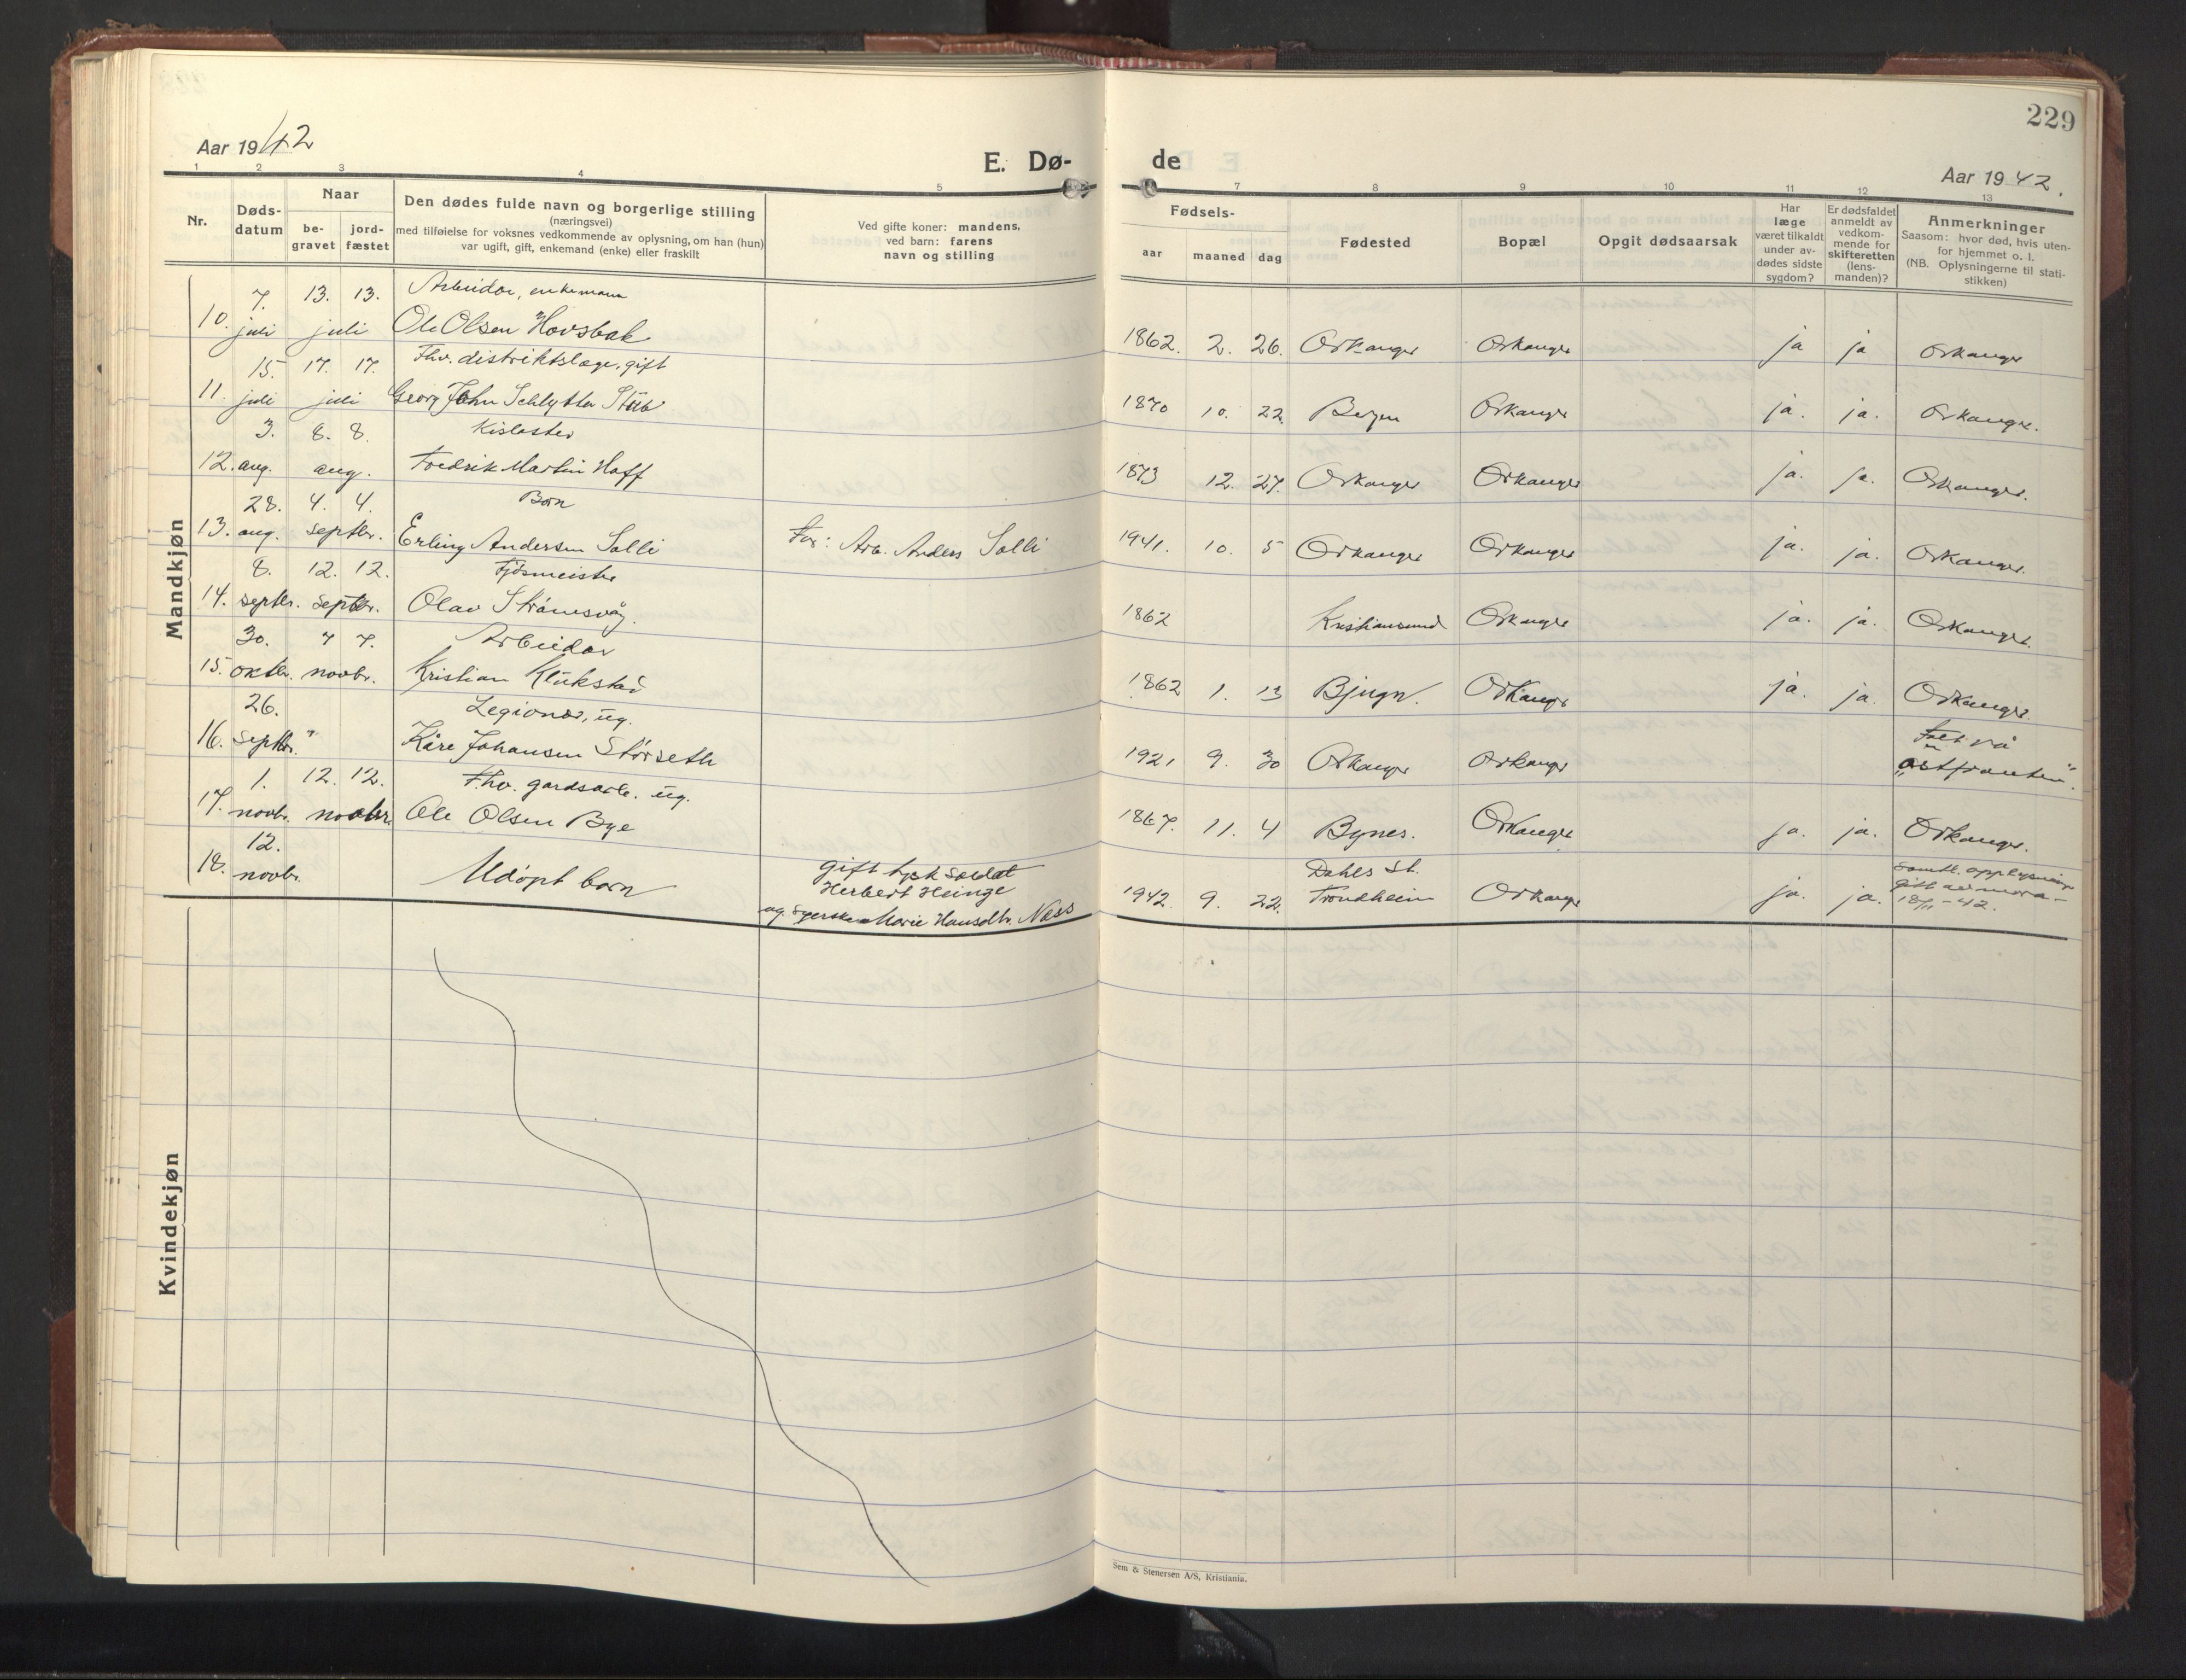 229
Aar 1942
E. Dø-
de
Aar 1942.
1 2 3 4 5 7 8 9 10 11 12 13
Nr.
Døds-
datum
Naar
be-
gravet
jord-
fæstet
Den dødes fulde navn og borgerlige stilling
(næringsvei)
med tilføielse for voksnes vedkommende av oplysning, om han (hun)
var ugift, gift, enkemand (enke) eller fraskilt
Ved gifte koner: mandens,
ved barn: farens
navn og stilling
Fødsels-
aar
maaned
dag
Fødested
Bopæl
Opgit dødsaarsak
Har
læge
været tilkaldt
under av-
dødes sidste
sygdom?
Er dødsfaldet
anmeldt av
vedkom-
mende for
skifteretten
(lens-
manden)?
Anmerkninger
Saasom: hvor død, hvis uten-
for hjemmet o. l.
(NB. Oplysningerne til stati-
stikken)
Mandkjøn
7. 13. 13. Arbeidar, enkemann
10. juli juli Ole Olsen Hovsbak 1862. 2. 26. Orkanger Orkanger ja ja Orkanger
15. 17. 17. Fhv. distriktslæge, gift
11. juli juli Georg John Schlytter Stub 1870 10. 22. Bergen Orkanger ja. ja. Orkanger.
3. 8. 8.
12. aug. aug. Fredrik Martin Hoff 1873 12. 27. Orkanger Orkanger ja. ja. Orkanger.
28. 4. 4. Barn
13. aug. septbr. Erling Andersen Solli Far: Arb. Anders Solli 1941. 10. 5 Orkanger Orkanger ja. ja. Orkanger.
8. 12. 12. Fjøsmeister
14. septbr. septbr. Olav Strømsvåg. 1862 Kristiansund Orkanger ja. ja. Orkanger.
30. 7 7. Arbeidar
15. oktbr. novbr. Kristian Klukstad 1862 1. 13 Bjugn. Orkanger ja. ja. Orkanger.
26. Legionær, ug.
16. septbr. " Kåre Johansen Størseth 1921 9. 30 Orkanger Orkanger Falt på
"østfronten".
1. 12. 12. Fhv. gardsarb. ug.
17. novbr. novbr. Ole Olsen Bye 1867. 11. 4 Bynes. Orkanger ja. ja. Orkanger.
12.
18. novbr. Udøpt barn gift tysk soldat
Herbert Heinze
ug. syerske Marie Hansdtr. Næss
1942. 9. 22. Dahls St.
Trondheim Orkanger ja. ja. Samtl. opplysninger
gitt av mora -
18/11-42.
Kvindekjøn
Sem & Stenersen A/S, Kristiania.